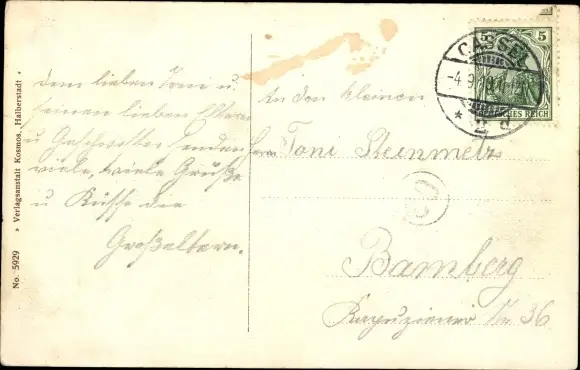 Dem lieben Toni u.
seinen lieben Eltern
u Geschwister senden
viele, viele Grüße
u Küsse die
Großeltern.
An den kleinen
Herrn Toni Steinmetz
Bamberg
Kapuziner 36
CASSEL
-4.9.
* 2 d
5 5
DEUTSCHES REICH
No. 5929 * Verlagsanstalt Kosmos, Halberstadt *